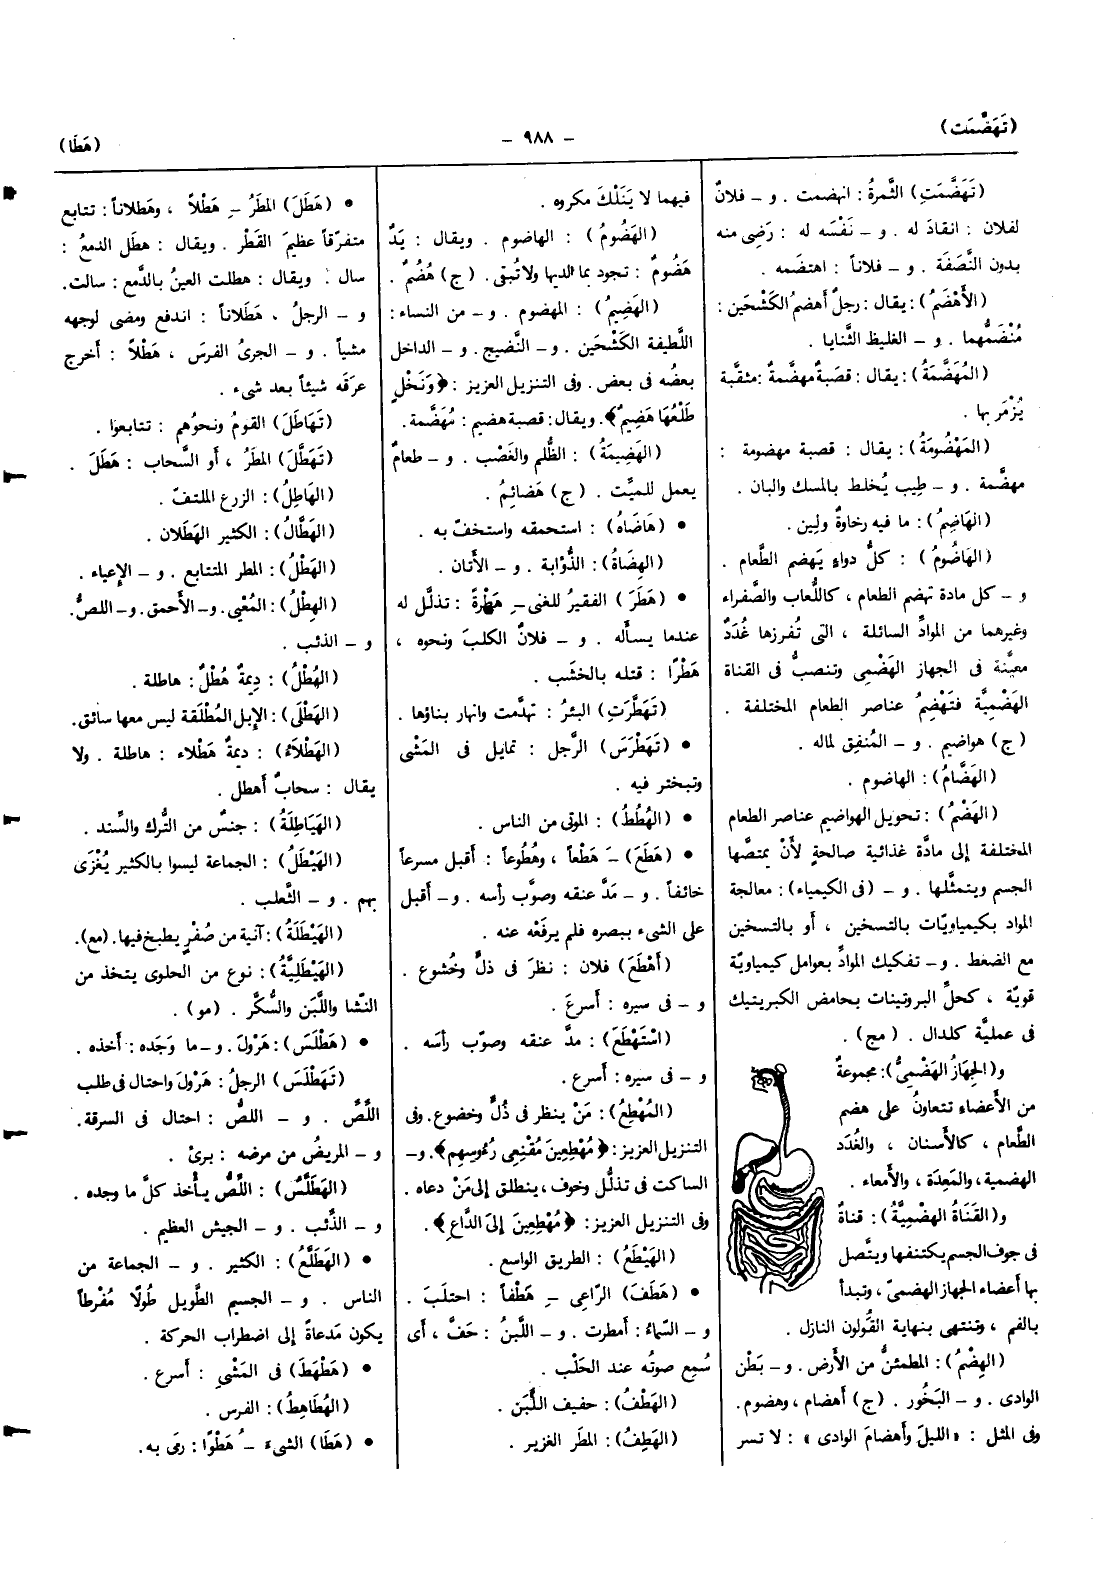 (تَهَضَّمَت)
- ٩٨٨ -
(هَطَا)
(تَهَضَّمَتِ) الثَّمرةُ : انهضمت . و – فلانٌ
لفلان : انقادَ له . و – نَفْسَه له : رَضِى منه
بدون النَّصَفَة . و – فلاناً : اهتضمه .
(الأَهْضَمُ) : يقال : رجلٌ أهضمُ الكَشْحَين :
مُنْضَمُّهما . و – الغليظ الثَّنايا .
(المُهَضَّمَةُ) : يقال : قصبةٌ مهضَّمةٌ : مثقَّبة
يُزْمَر بها .
(المَهْضُومَةُ) : يقال : قصبة مهضومة :
مهضَّمة . و – طِيب يُخلط بالمسك والبان .
(الهَاضِمُ) : ما فيه رخاوةٌ ولِين .
(الهَاضُومُ) : كلُّ دواءٍ يَهضِم الطَّعام .
و – كل مادة تهضِم الطعام ، كاللُّعاب والصَّفراء
وغيرهما من الموادِّ السائلة ، التى تُفرزها غُدَدٌ
معيَّنة فى الجهاز الهَضْمِى وتنصبُّ فى القناة
الهَضْمِيَّة فتَهْضِمُ عناصر الطعام المختلفة .
(ج) هواضيم . و – المُنفِق لماله .
(الهَضَّامُ) : الهاضوم .
(الهَضْمُ) : تحويل الهواضيم عناصر الطعام
المختلفة إلى مادَّة غذائية صالحةٍ لأَنْ يمتصَّها
الجسم ويتمثَّلها . و – (فى الكيمياء) : معالجة
المواد بكيمياويّات بالتسخين ، أو بالتسخين
مع الضغط . و – تفكيك الموادِّ بعوامل كيمياويّة
قويّة ، كحلِّ البروتينات بحامض الكبريتيك
فى عمليَّة كلدال . (مج) .
و(الجِهازُ الهَضْمِىُّ) : مجموعةٌ
من الأعضاء تتعاونُ على هضم
الطَّعام ، كالأسنان ، والغُدَد
الهضمية، والمَعِدَة ، والأمعاء .
و(القَنَاةُ الهضْمِيَّةُ) : قناةٌ
فى جوف الجسم يكتنفها ويتَّصل
بها أعضاء الجهاز الهضمىّ ، وتبدأ
بالفم ، وتنتهى بنهاية القُولون النازل .
(الهِضْمُ) : المطمئنُّ من الأرض . و – بَطْن
الوادى . و – البَخُور . (ج) أهضام ، وهضوم .
وفى المثل : «الليلَ وأهضامَ الوادى» : لا تسر
فيهما لا يَنَلْكَ مكروه .
(الهَضُومُ) : الهاضوم . ويقال : يَدٌ
هَضُومٌ : تجود بما لديها ولا تُبقى . (ج) هُضُمٌ .
(الهَضِيمُ) : المهضوم . و – من النساء :
اللَّطيفة الكَشْحَين . و – النَّضيج . و – الداخل
بعضُه فى بعض . وفى التنزيل العزيز : ﴿وَنَخْلٍ
طَلْعُهَا هَضِيمٌ﴾. ويقال : قصبة هضيم : مُهَضَّمة .
(الهَضِيمَةُ) : الظُّلم والغَصْب . و – طعامٌ
يعمل للميِّت . (ج) هَضائمُ .
• (هَاضَاهُ) : استحمقه واستخفّ به .
(الهِضَاةُ) : الذُّؤابة . و – الأتان .
• (هَطَرَ) الفقيرُ للغنى –ِ هَطْرةً : تذلَّل له
عندما يسأله . و – فلانٌ الكلبَ ونحوه ،
هَطْرًا : قتله بالخشَب .
(تَهَطَّرَتِ) البئرُ : تهدَّمت وانهار بناؤها .
• (تَهَطْرَسَ) الرَّجل : تمايل فى المَشْى
وتبختر فيه .
• (الهُطُطُ) : الموتى من الناس .
• (هَطَعَ) –َ هَطْعاً ، وهُطُوعاً : أقبل مسرعاً
خائفاً . و – مَدَّ عنقه وصوَّب رأسه . و – أقبل
على الشىء ببصره فلم يرفَعْه عنه .
(أَهْطَعَ) فلان : نظرَ فى ذلٍّ وخُشوع .
و – فى سيره : أسرعَ .
(اسْتَهْطَعَ) : مدَّ عنقه وصوّب رأسَه .
و – فى سيره : أسرع .
(المُهْطِعُ) : مَنْ ينظر فى ذُلٍّ وخضوع . وفى
التنزيل العزيز : ﴿مُهْطِعِينَ مُقْنِعِى رُءُوسِهِم﴾. و –
الساكت فى تذلُّل وخوف ، ينطلق إلى مَنْ دعاه .
وفى التنزيل العزيز : ﴿مُهْطِعِينَ إِلَى الدَّاعِ﴾ .
(الهَيْطَعُ) : الطريق الواسع .
• (هَطَفَ) الرَّاعى –ِ هَطْفاً : احتلَبَ .
و – السَّماءُ : أمطرت . و – اللَّبنُ : حَفَّ ، أى
سُمِع صوتُه عند الحَلْب .
(الهَطْفُ) : حفيف اللَّبَن .
(الهَطِفُ) : المطَر الغزير .
• (هَطَلَ) المطَرُ –ِ هَطْلاً ، وهَطَلاناً : تتابع
متفرّقاً عظيمَ القَطْر . ويقال : هطَل الدمعُ :
سال . ويقال : هطلت العينُ بالدَّمع : سالت .
و – الرجلُ ، هَطَلاناً : اندفع ومضى لوجهه
مشياً . و – الجرىُ الفرسَ ، هَطْلاً : أخرج
عرَقَه شيئاً بعد شىء .
(تَهَاطَلَ) القومُ ونحوُهم : تتابعوا .
(تَهَطَّلَ) المطَرُ ، أو السَّحاب : هَطَلَ .
(الهَاطِلُ) : الزرع الملتفّ .
(الهَطَّالُ) : الكثير الهَطَلان .
(الهَطْلُ) : المطر المتتابع . و – الإعياء .
(الهِطْلُ) : المُعْيِى . و – الأحمق . و – اللصُّ .
و – الذئب .
(الهُطْلُ) : دِيمةٌ هُطْلٌ : هاطلة .
(الهَطْلَى) : الإبل المُطْلَقة ليس معها سائق .
(الهَطْلَاءُ) : ديمةٌ هَطْلاء : هاطلة . ولا
يقال : سحابٌ أهطل .
(الهَيَاطِلَةُ) : جنسٌ من التُّرك والسِّند .
(الهَيْطَلُ) : الجماعة ليسوا بالكثير يُغْزَى
بهم . و – الثَّعلب .
(الهَيْطَلَةُ) : آنية من صُفْرٍ يطبخ فيها . (مع) .
(الهَيْطَلِيَّةُ) : نوع من الحلوى يتخذ من
النّشا واللَّبَن والسُّكَّر . (مو) .
• (هَطْلَسَ) : هَرْوَلَ . و – ما وَجَده : أخذه .
(تَهَطْلَسَ) الرجلُ : هَرْوَلَ واحتال فى طلب
اللَّصِّ . و – اللصُّ : احتال فى السرقة .
و – المريضُ من مرضه : برئ .
(الهَطَلَّسُ) : اللصُّ يأخذ كلَّ ما وجده .
و – الذِّئب . و – الجيش العظيم .
• (الهَطَلَّعُ) : الكثير . و – الجماعة من
الناس . و – الجسيم الطَّويل طُولًا مُفْرِطاً
يكون مَدعاةً إلى اضطراب الحركة .
• (هَطْهَطَ) فى المَشْىِ : أسرع .
(الهُطَاهِطُ) : الفرس .
• (هَطَا) الشىءَ –ُ هَطْوًا : رمَى به .